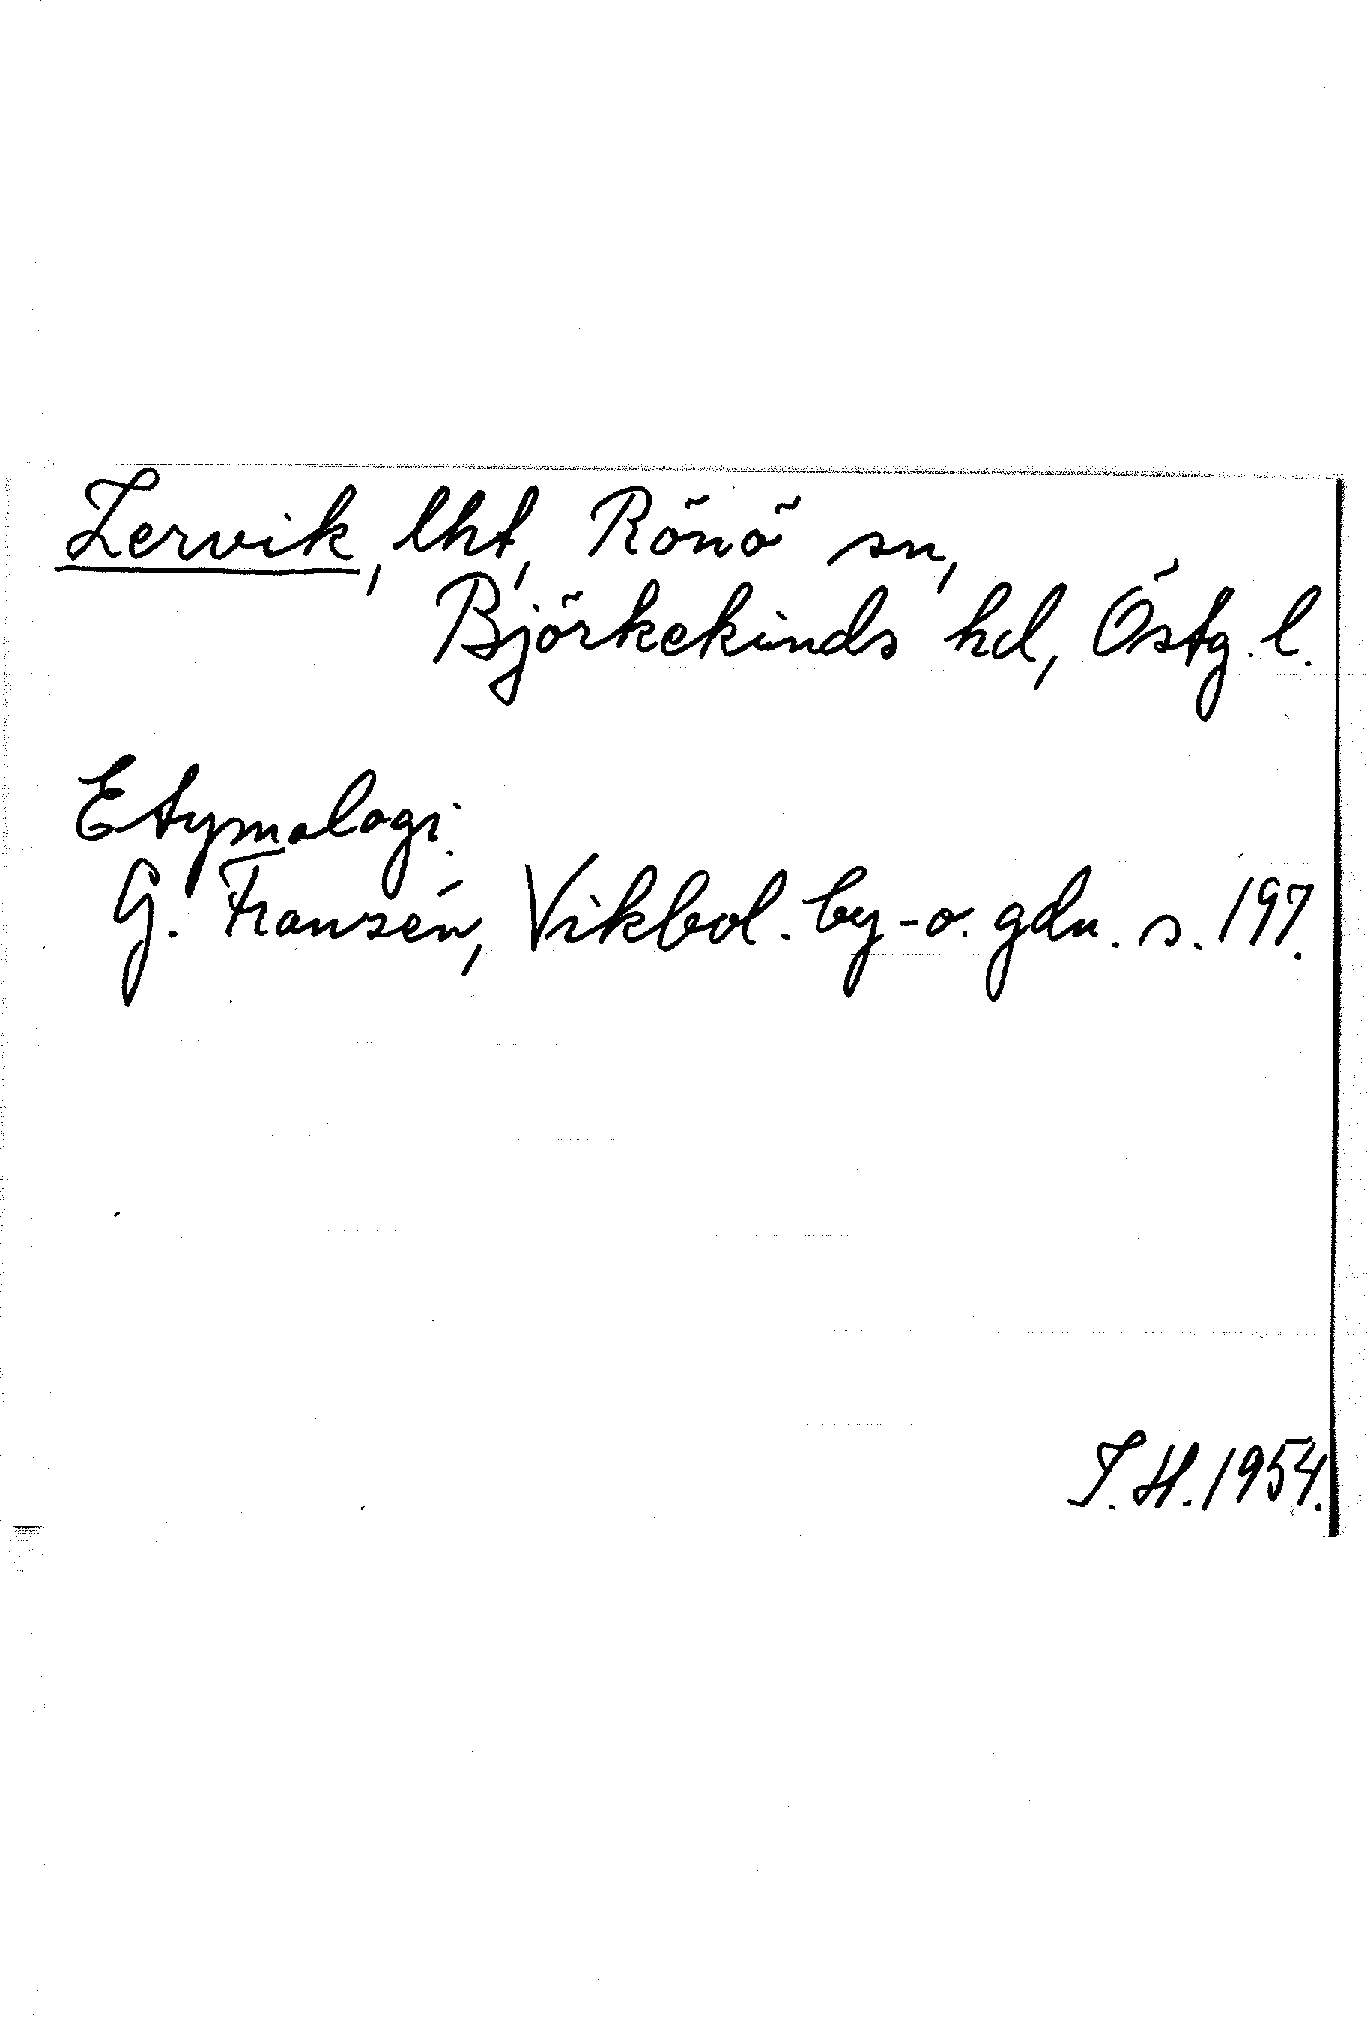 Lervik, lht, Rönö sn,
Björkekinds hd, Östg. l.
Etymologi.
G. Franzén, Vikbol. by- o. gdn. s. 197.
T. H. 1954.